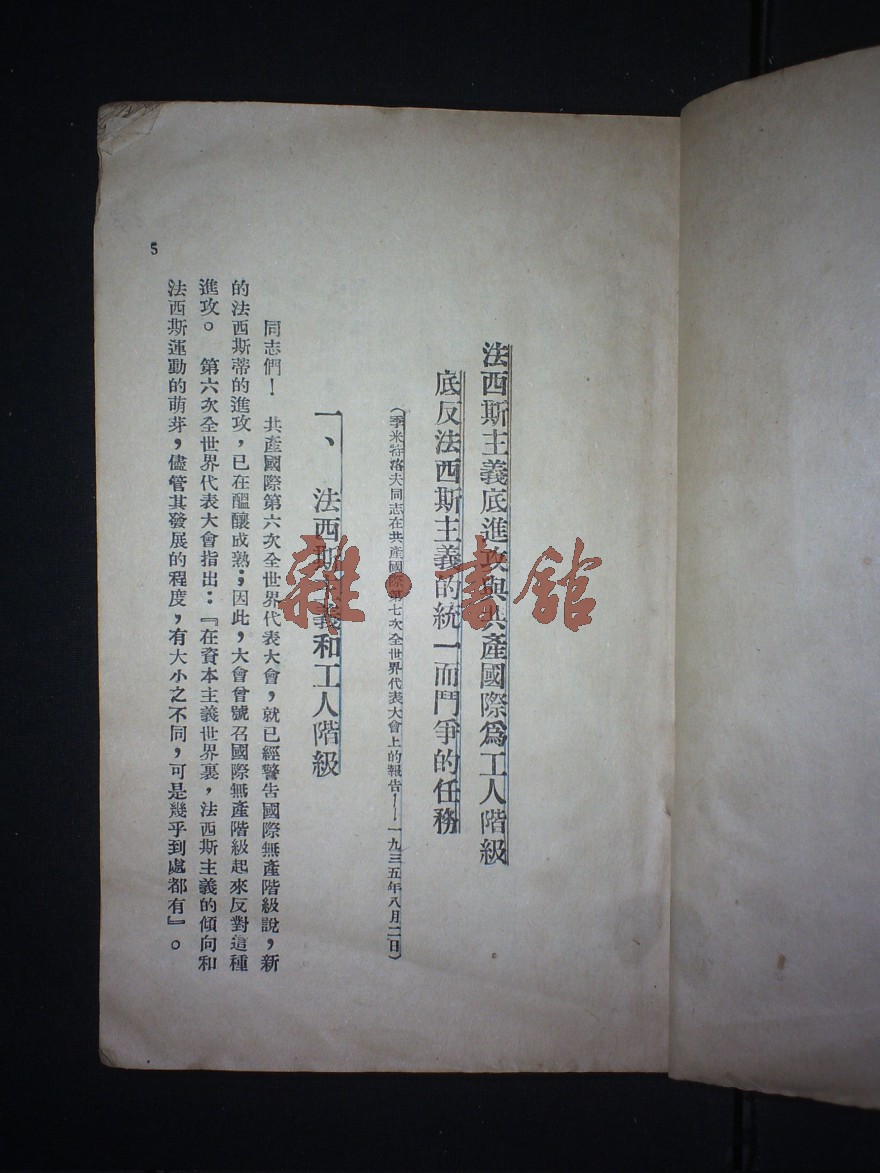 法西斯主義底進攻與共產國際爲工人階級
底反法西斯主義的統一而鬥爭的任務
（季米特洛夫同志在共產國際第七次全世界代表大會上的報告——一九三五年八月二日）
一、法西斯主義和工人階級
同志們！共產國際第六次全世界代表大會，就已經警告國際無產階級說，新
的法西斯蒂的進攻，已在醞釀成熟；因此，大會曾號召國際無產階級起來反對這種
進攻。第六次全世界代表大會指出：『在資本主義世界裏，法西斯主義的傾向和
法西斯運動的萌芽，儘管其發展的程度，有大小之不同，可是幾乎到處都有』。
5
雜·書館